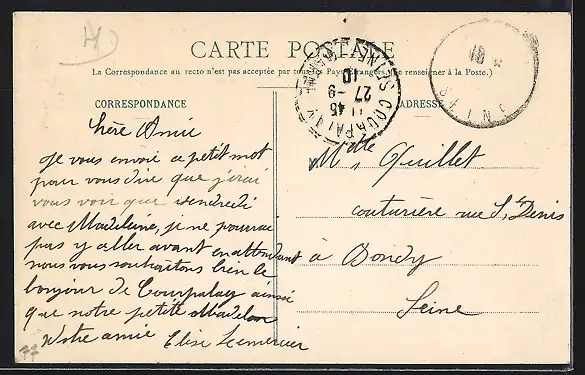 H
CARTE POSTALE
(La Correspondance au recto n'est pas acceptée par tous les Pays Etrangers. (Se renseigner à la Poste.)
CORRESPONDANCE
ADRESSE
Chère Amie
Je vous envoie ce petit mot
pour vous dire que j'irai
vous voir que vendredi
avec Madeleine, je ne pourrai
pas y aller avant en attendant
nous vous souhaitons bien le
bonjour de Courpalay ainssi
que notre petite Madelon
Votre amie Elise Lemercier
Mdlle Quillet
couturière rue St Denis
à Bondy
Seine
COURPALAY
27 -9
10